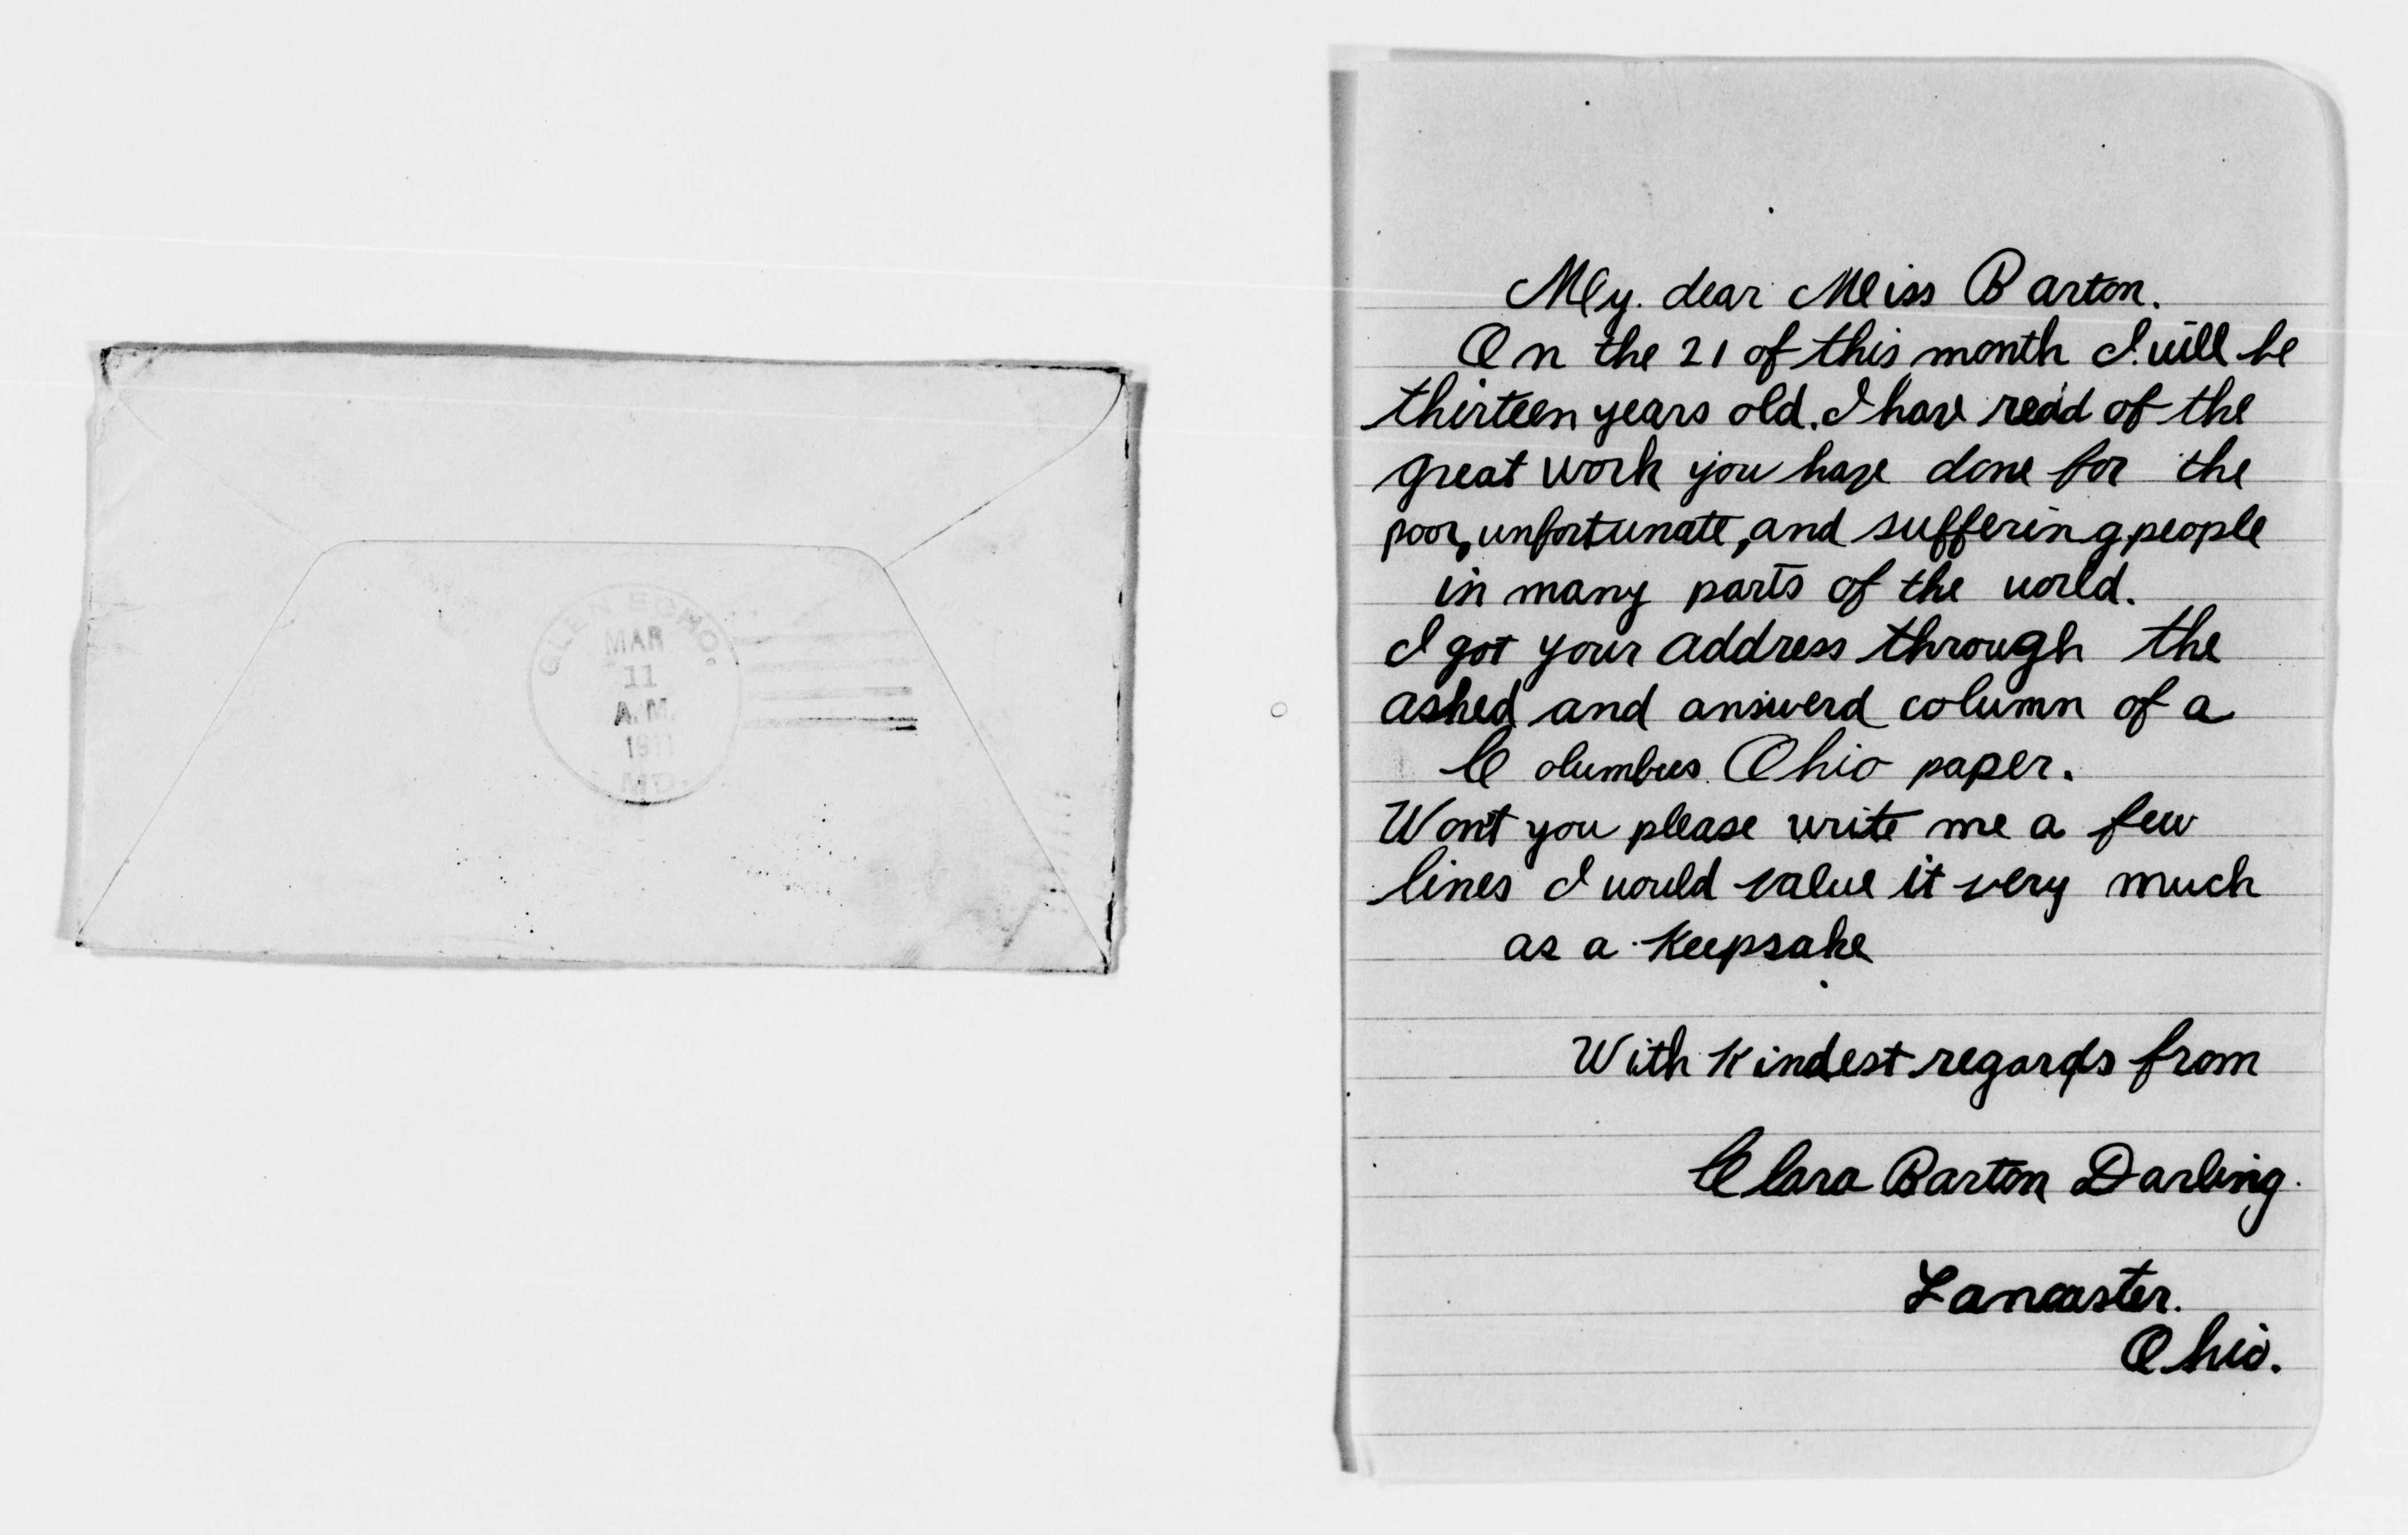 GLEN ECHO.
MAR
11
A.M.
1911
MD.
My. dear Miss Barton.
On the 21 of this month I will be
thirteen years old. I have read of the
great work you have done for the
poor, unfortunate, and suffering people
in many parts of the world.
I got your address through the
asked and answerd column of a
Columbus Ohio paper.
Wont you please write me a few
lines I would value it very much
as a keepsake
With kindest regards from
Clara Barton Darling.
Lancaster.
Ohio.